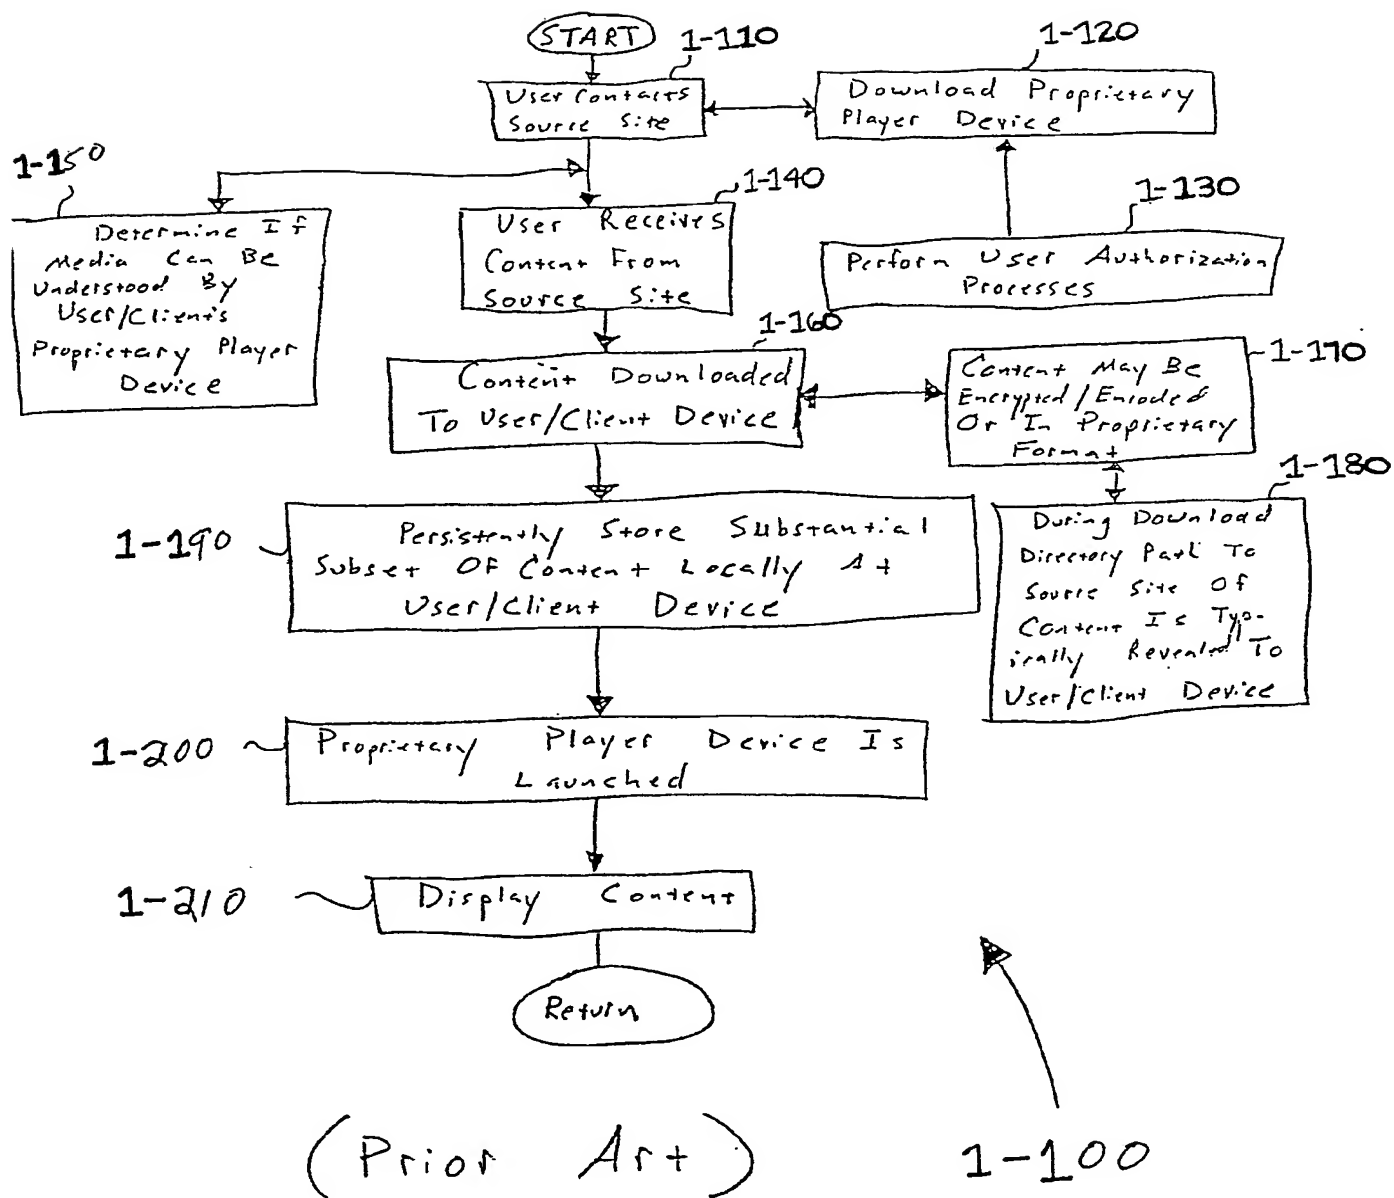 START
1-110
User Contacts
Source Site
1-120
Download Proprietary
Player Device
1-130
Perform User Authorization
Processes
1-150
Determine If
Media Can Be
Understood By
User/Client's
Proprietary Player
Device
1-140
User Receives
Content From
Source Site
1-160
Content Downloaded
To User/Client Device
1-170
Content May Be
Encrypted/Encoded
Or In Proprietary
Format
1-180
During Download
Directory Path To
Source Site Of
Content Is Typ-
ically Revealed To
User/Client Device
1-190
Persistently Store Substantial
Subset Of Content Locally At
User/Client Device
1-200
Proprietary Player Device Is
Launched
1-210
Display Content
Return
(Prior Art)
1-100